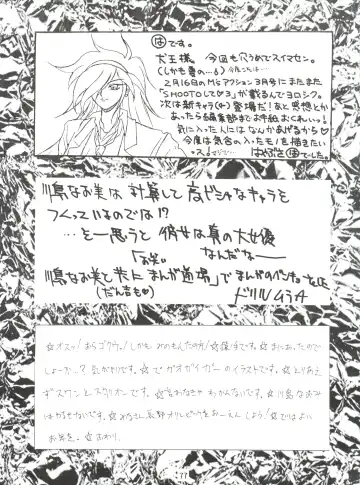 ほです。
犬王様 今回も穴うめでスイマセン。
(しかも昔の…。)
2月16日のM'sアクション3月号にまたまた
「SHOOTOして♡3」が載るんでヨロシク。
次は新キャラ(女)登場だ!あと感想とか
あったら編集部までお手紙おくれいっ!
気に入った人にはなんかあげるから♡
今度は気合の入ったモノを描きたい
っス。
はやぶさ ほ でした。
川島なお美は計算して高ビシャなキャラを
つくっているのでは!?
…と思うと彼女は真の大女優
なんだな──
川島なお美と共に「まんが道場」でまんがのベンキョー
(だん吉も♡)
ドリルムラタ
☆オスッ!おらゴクウ。!しかも、みのもんたの方!
しょーか…?気がかりです。☆でガオガイガーのイラストです。☆とりあえ
ずスワンとスタリオンです。
はかかせないです。☆みなさん長野オリンピックをおーえんしよう!☆ではよい
お年を。☆おわり。
77